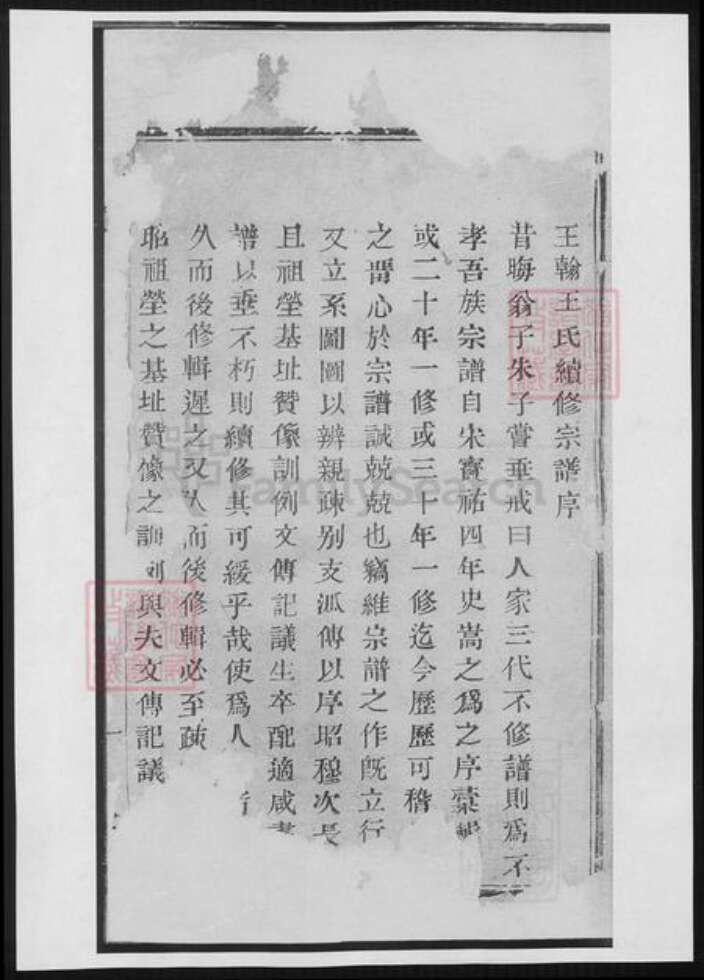 王翰王氏續修宗譜序
昔晦翁子朱子嘗垂戒曰人家三代不修譜則為不
孝吾族宗譜自宋寶祐四年史嵩之為之序彙輯
或二十年一修或三十年一修迄今歷歷可稽
之留心於宗譜誠兢兢也竊維宗譜之作既立行
又立系圖圖以辨親疎别支派傳以序昭穆次長
且祖塋基址贊像訓例文傳記議生卒配適咸書
譜以垂不朽則續修其可緩乎哉使為人
久而後修輯遲之又久而後修輯必至疎
祖塋之基址贊像之訓例與夫文傳記議
FamilySearch